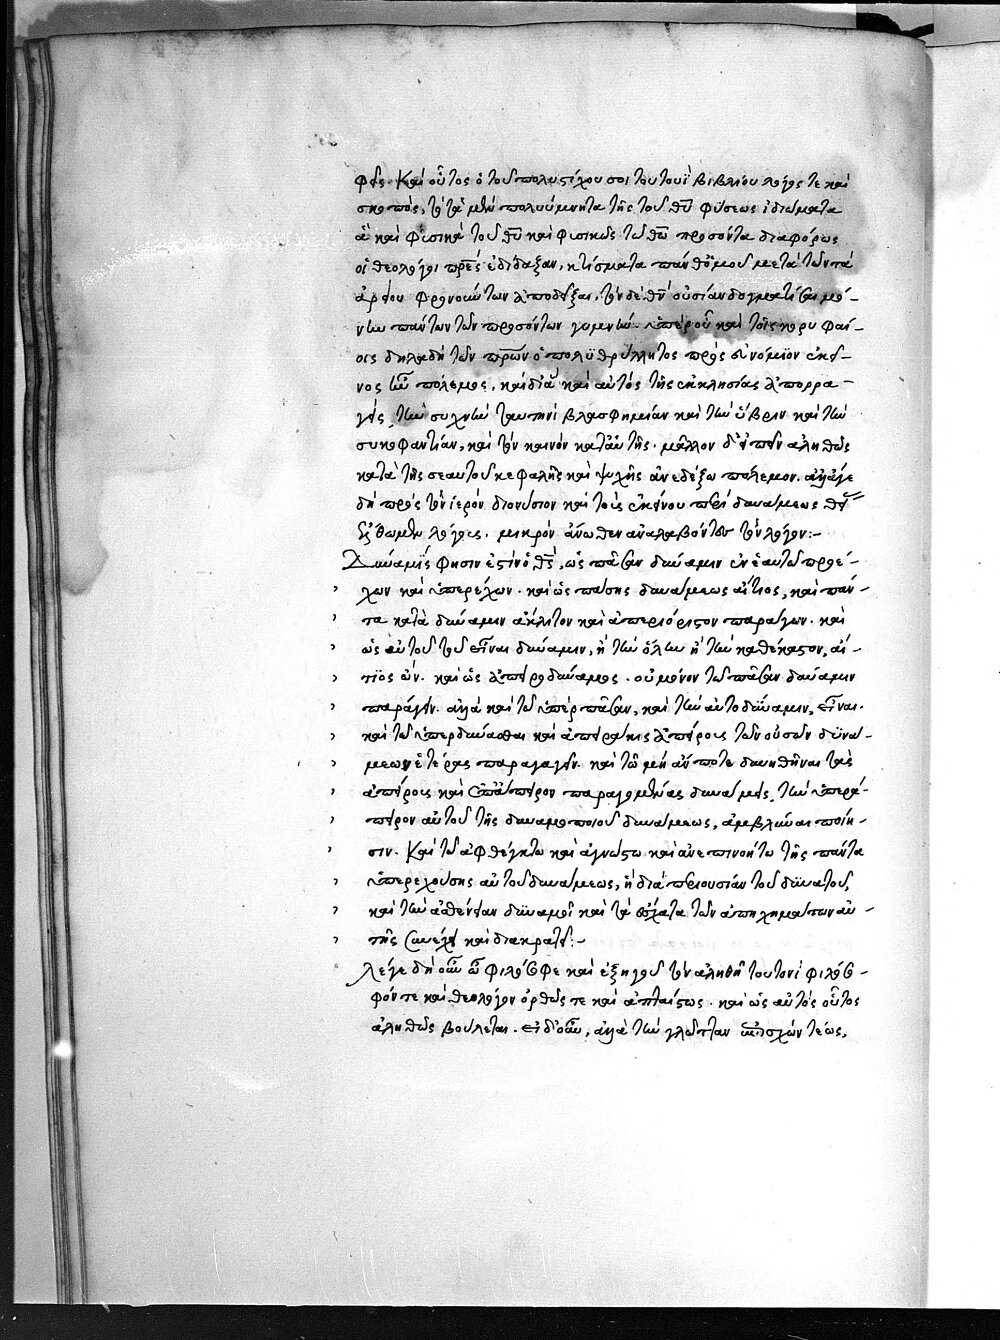 φεῖς. Καὶ οὗτος ὁ τοῦ πολυστίχου σοι τουτουῒ βιβλίου λόγος τε καὶ
σκοπὸς, τὸ τὰ μὲν πολυύμνητα τῆς τοῦ θῦ φύσεως ἰδιώματα
ἃ καὶ φυσικὰ τοῦ θῦ καὶ φυσικῶς τῶ θῶ προσόντα διαφόρως
οἱ θεολόγοι πρες ἐδίδαξαν, κτίσματα πανθ᾽ ὁμοῦ μετὰ τῶν τὰ
ἀρείου φρονούντων ἀποδεῖξαι, τὴν δὲ θυ οὐσίαν δογματίσαι μό-
νην πάντων τῶν προσόντων γυμνήν. ὑπὲρ οὗ καὶ τοῖς κορυφαί-
οις δηλαδὴ τῶν πρων ὁ πολυθρύλλητος πρὸς εὐνόμιον ἐκεῖ-
νος ἦν πόλεμος, καὶ διὰ καὶ αὐτὸς τῆς ἐκκλησίας ἀπορρα-
γεὶς, τὴν συχνὴν ταυτηνὶ βλασφημίαν καὶ τὴν ὕβριν καὶ τὴν
συκοφαντίαν, καὶ τὸν καινὸν κατ᾽ αὐτῆς. μᾶλλον δ᾽ εἰπεῖν ἀληθῶς
κατὰ τῆς σεαυτοῦ κεφαλῆς καὶ ψυχῆς ἀνεδέξω πόλεμον. ἀλλ᾽ ἄγε
δὴ πρὸς τὸν ἱερὸν διονύσιον καὶ τοὺς ἐκείνου περὶ δυνάμεως θυ
ἔλθωμεν λόγους. μικρὸν ἄνωθεν ἀναλαβόντες τὸν λόγον:-
Δύναμις φησιν ἐστὶν ὁ θς, ὡς πᾶσαν δύναμιν ἐν ἑαυτῶ προέ-
χων καὶ ὑπερέχων. καὶ ὡς πάσης δυνάμεως αἴτιος, καὶ πάν-
τα κατὰ δύναμιν ἄκλιτον καὶ ἀπεριόριστον παράγων. καὶ
ὡς αὐτοῦ τοῦ εἶναι δύναμιν, ἢ τὴν ὅλην ἢ τὴν καθέκαστον, αἴ-
τιος ὤν. καὶ ὡς ἀπειροδύναμος. οὐ μόνον τῶ πᾶσαν δύναμιν
παράγειν. ἀλλὰ καὶ τῶ ὑπὲρ πᾶσαν, καὶ τὴν αὐτοδύναμιν, εἶναι.
καὶ τῶ ὑπερδύνασθαι καὶ ἀπειράκις ἀπείρους τῶν οὐσῶν δυνά-
μεων ἑτέρας παραγαγεῖν. καὶ τῶ μὴ ἄν ποτε δυνηθῆναι τὰς
ἀπείρους καὶ ἐπ᾽ ἄπειρον παραγομένας δυνάμεις, τὴν ὑπερά-
πειρον αὐτοῦ τῆς δυναμοποιοῦ δυνάμεως, ἀμβλῦναι ποίη-
σιν. Καὶ τῶ ἀφθέγκτω καὶ ἀγνώστω καὶ ἀνεπινοήτω τῆς πάντα
ὑπερεχούσης αὐτοῦ δυνάμεως, ἣ διὰ περιουσίαν τοῦ δυνατοῦ,
καὶ τὴν ἀσθένειαν δυναμοῖ καὶ τὰ ἔσχατα τῶν ἀπηχημάτων αὐ-
τῆς συνέχει καὶ διακρατεῖ:-
Λέγε δὴ οὖν ὦ φιλόσοφε καὶ ἐξηγοῦ τὸν ἀληθῆ τουτονὶ φιλόσο-
φόν τε καὶ θεολόγον ὀρθῶς τε καὶ ἀπταίστως. καὶ ὡς αὐτὸς οὗτος
ἀληθῶς βούλεται. εἰ δ᾽ οὖν, ἀλλὰ τὴν γλῶτταν ἐπισχών τέως,